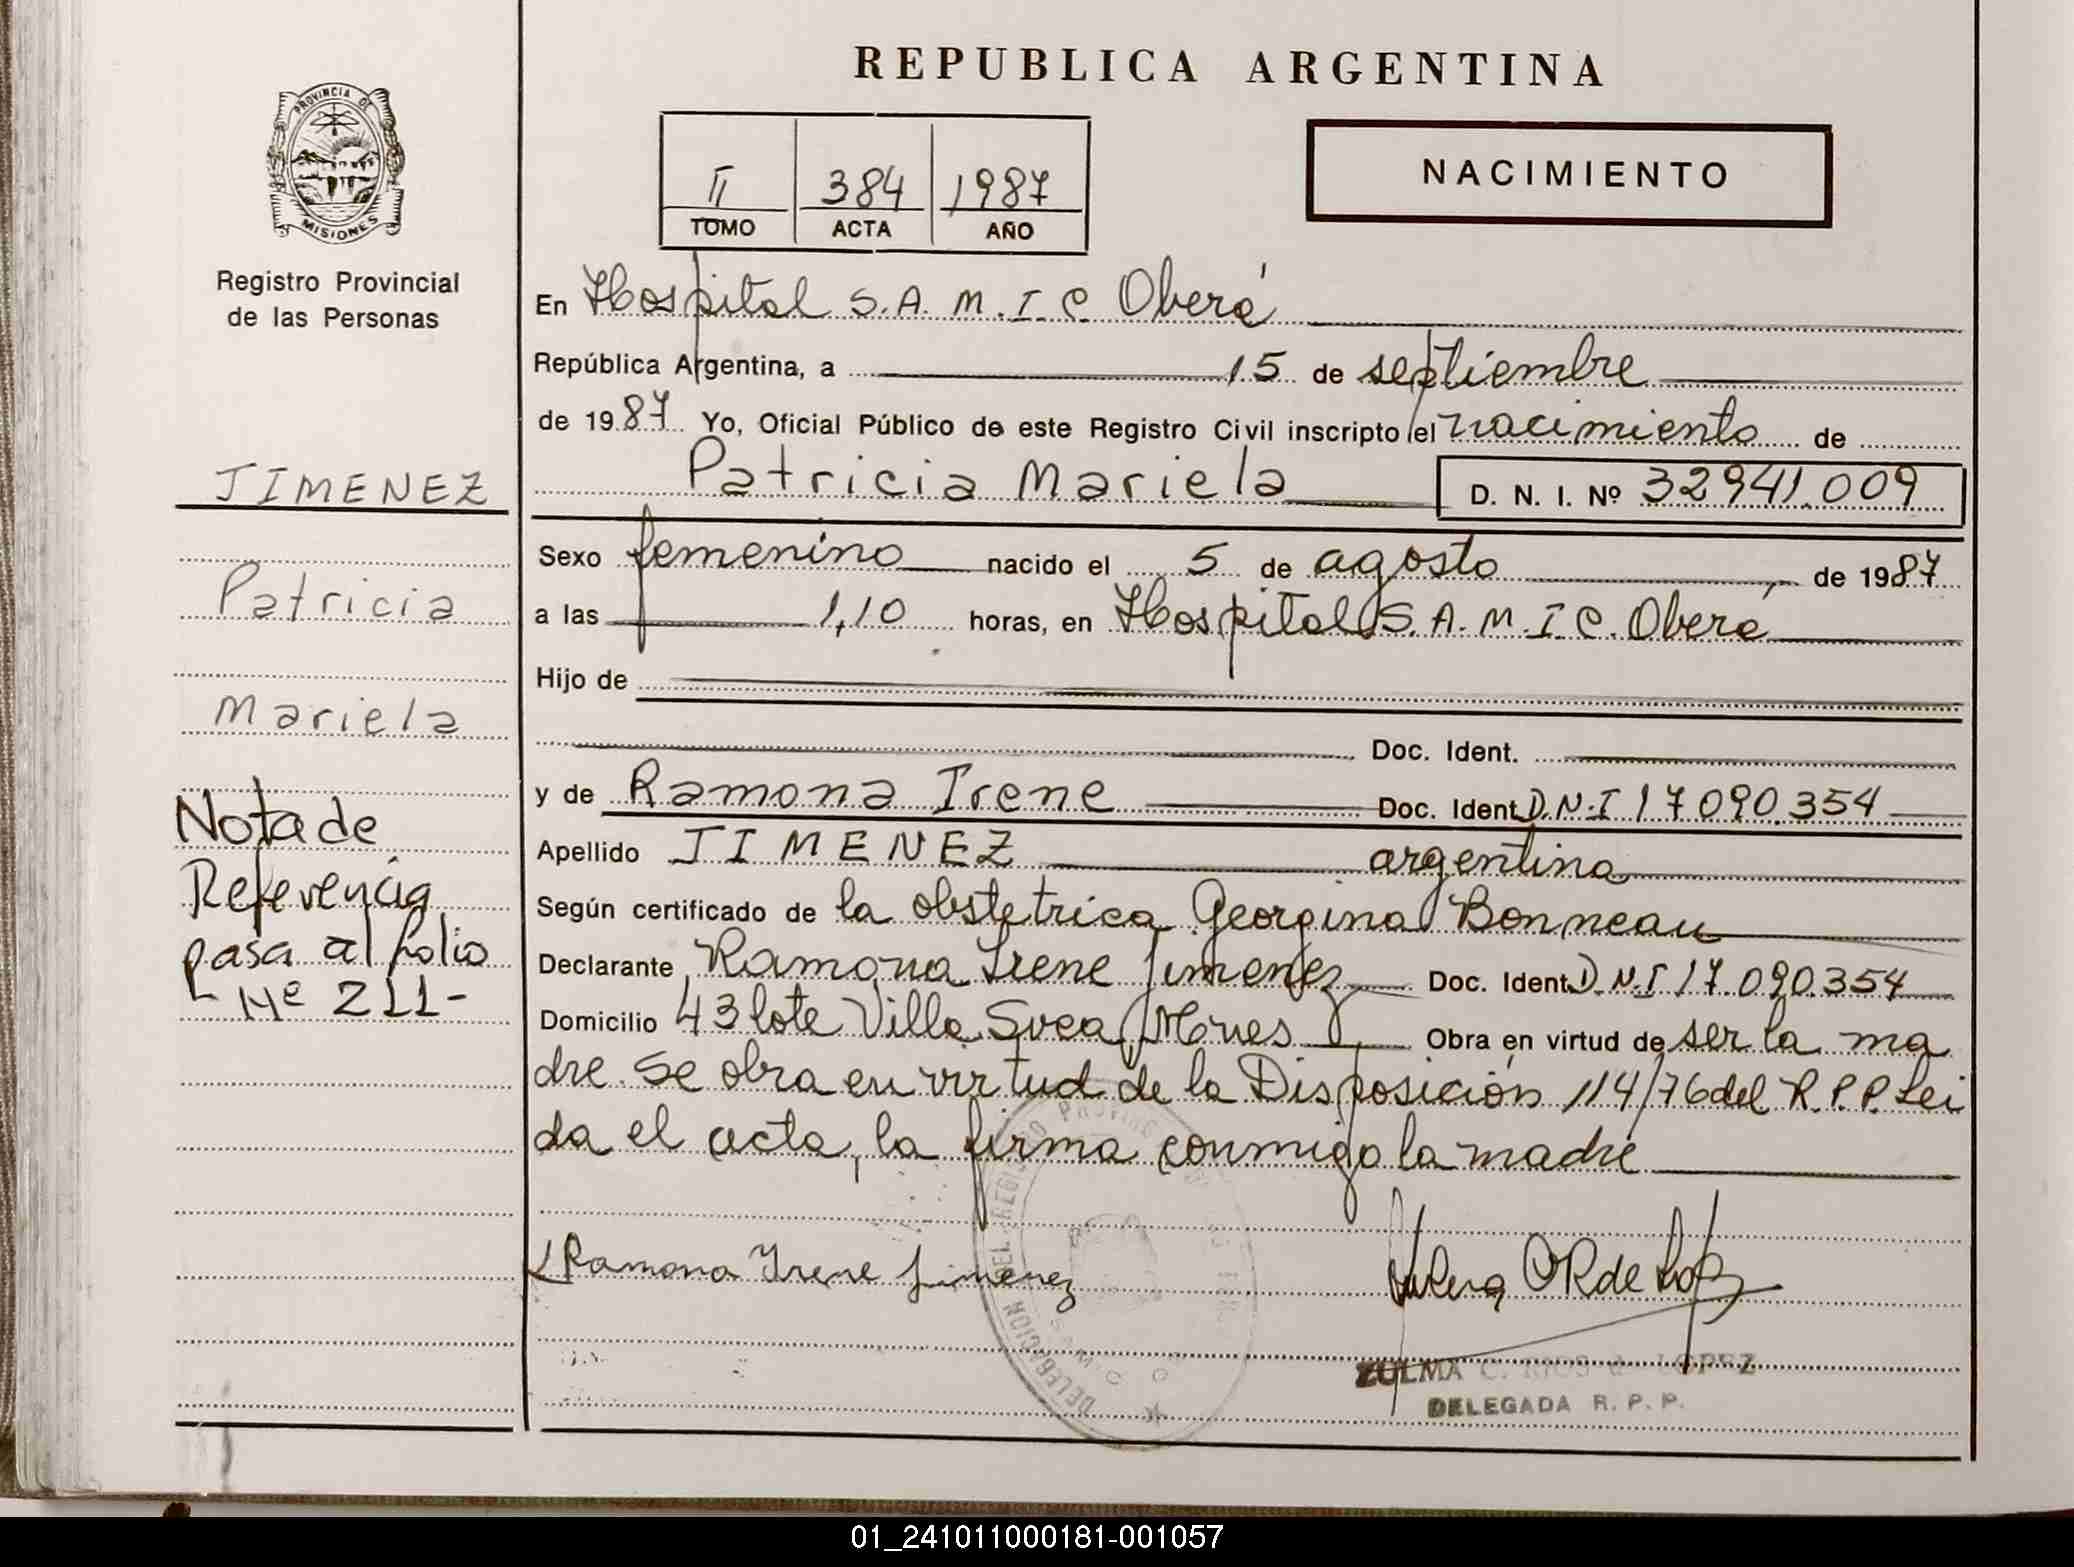 REPUBLICA ARGENTINA
PROVINCIA DE MISIONES
Registro Provincial
de las Personas
II 384 1987
TOMO ACTA AÑO
NACIMIENTO
En Hospital S.A.M.I.C. Oberá
República Argentina, a 15 de septiembre
de 1987 Yo, Oficial Público de este Registro Civil inscripto el nacimiento de
Patricia Mariela D. N. I. Nº 32941.009
Sexo femenino nacido el 5 de agosto de 1987
a las 1,10 horas, en Hospital S.A.M.I.C. Oberá
Hijo de
Doc. Ident.
y de Ramona Irene Doc. Ident. D.N.I 17090.354
Apellido JIMENEZ argentina
Según certificado de la obstetrica Georgina Bonneau
Declarante Ramona Irene Jimenez Doc. Ident. D.N.I 17.090.354
Domicilio 43 lote Villa Svea, Mnes Obra en virtud de ser la ma
dre. Se obra en virtud de la Disposición 114/76 del R.P.P. Lei
da el acta, la firma conmigo la madre
Ramona Irene Jimenez
ZULMA C. RIOS de LOPEZ
DELEGADA R. P. P.
DELEGACION DEL REGISTRO
JIMENEZ
Patricia
Mariela
Nota de
Referencia
pasa al folio
Nº 211-
01_241011000181-001057